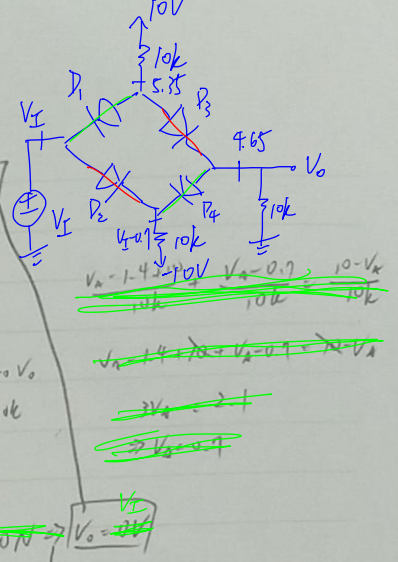 10V
10k
5.35
D1
D3
VI
4.65
Vo
VI
D2
D4
10k
VI-0.7
10k
-10V
VA-0.7
10-VA
10k
10k
10k
VA-1.4+10+VA-0.7=10-VA
3VA=2.1
⇒VA=0.7
Vo
ok
VI
ON ⇒ Vo=